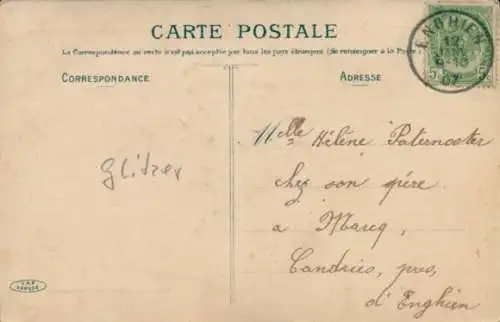 CARTE POSTALE
La Correspondance au verso n'est pas acceptée par tous les pays étrangers (Se renseigner à la Poste
CORRESPONDANCE
ADRESSE
ENGHIEN
12
5 07 5
Melle Hélène Paternoster
chez son père
à Marcq,
Candries, près
d'Enghien
Glitzer